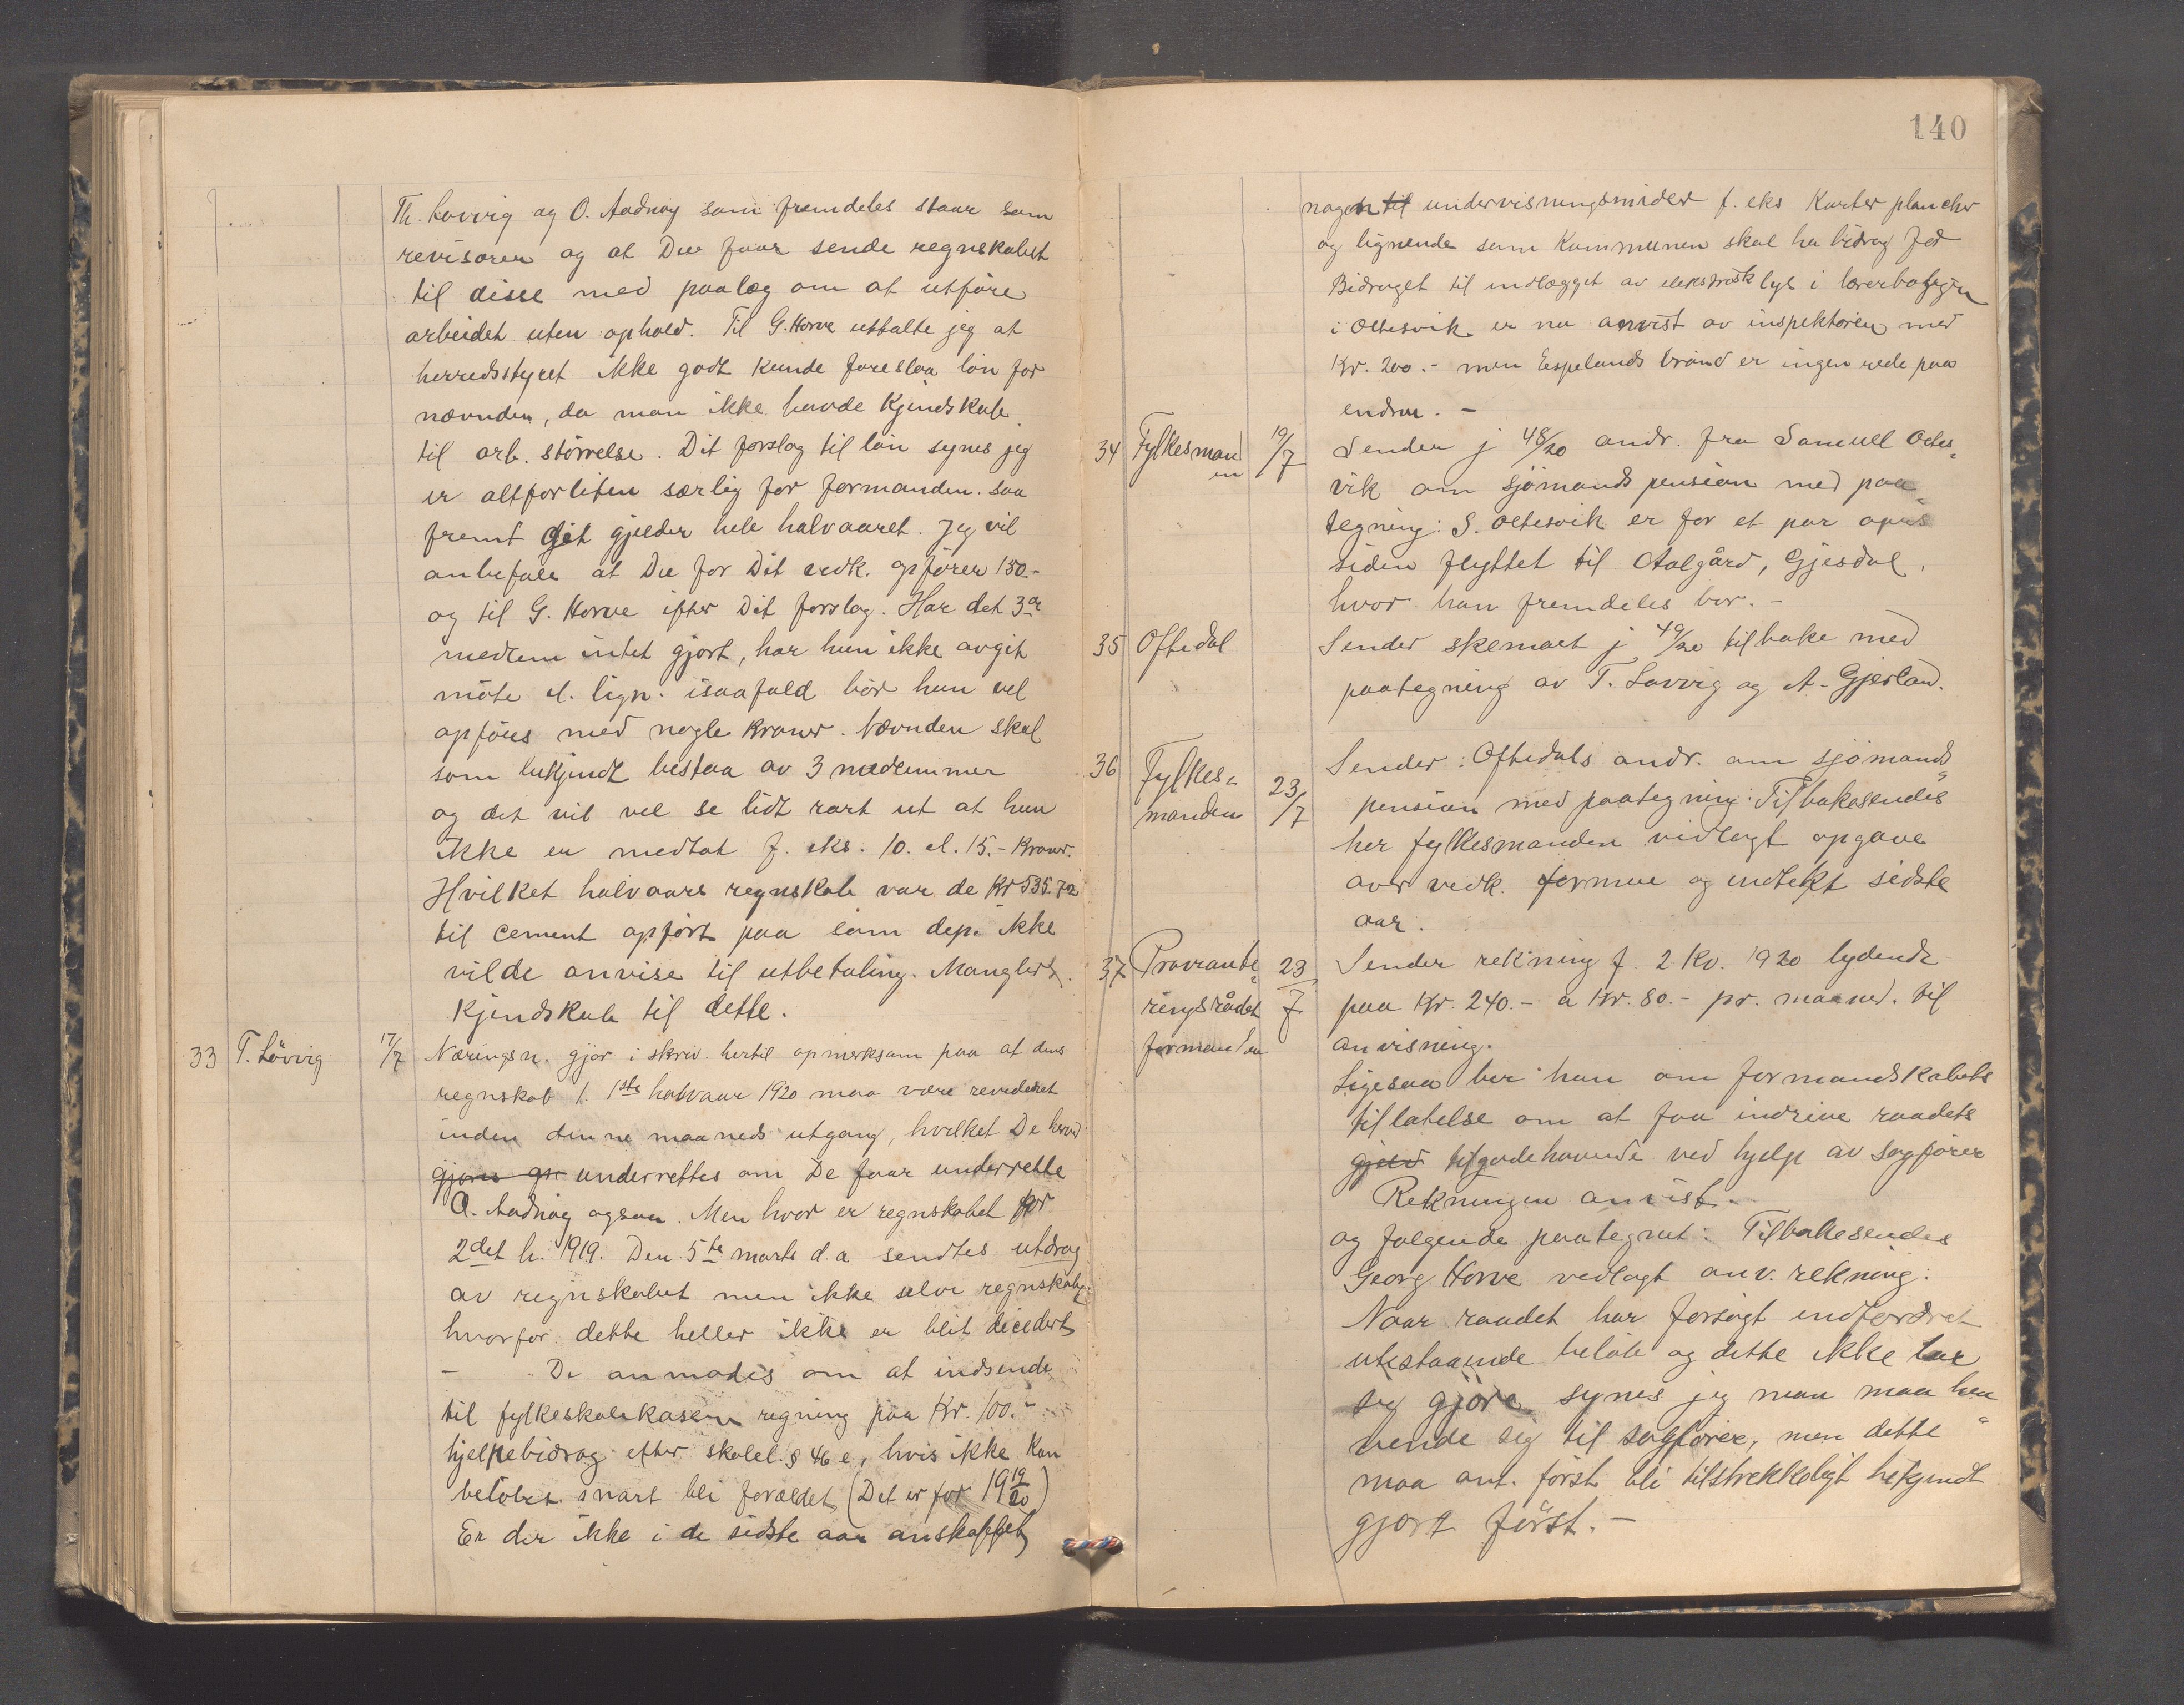 Th. Lovvig og O. Aadnøy som fremdeles staar som
revisorer og at Du faar sende regnskabet
til disse med paalæg om at utføre
arbeidet uten ophold. Til G. Horve uttalte jeg at
herredsstyret ikke godt kunde foreslaa løn for
nævnden, da man ikke havde Kjendskab
til arb. størrelse. Dit forslag til løn synes jeg
er altforliten særlig for formanden. saa
fremt det gjelder hele halvaaret. Jeg vil
anbefale at Du for Dit vedk. opfører 150.-
og til G. Horve efter Dit forslag. Har det 3die
medlem intet gjort, har hun ikke avgit
møte el. lign. isaafald bør hun vel
opføres med nogle Kroner. Nævnden skal
som bekjendt bestaa av 3 medlemmer
og det vil vel se lidt rart ut at hun
ikke er medtat f. eks. 10. el. 15.- Kroner.
Hvilket halvaars regnskab var de Kr 535.72
til cement opført paa som dep. ikke
vilde anvise til utbetaling. Manglert
Kjendskab til dette.
33 T. Løvvig 17/7 Næringsn. gjør i skriv. hertil opmerksom paa at dens
regnskab f. 1ste halvaar 1920 maa være revideret
inden denne maaneds utgang, hvilket De herved
gjøres op. underrettes om De faar underrette
O. Aadnøy ogsaa. Men hvor er regnskabet for
2det h. 1919. Den 5te marts d.a sendtes utdrag
av regnskabet men ikke selve regnskabet
hvorfor dette heller ikke er blit decedert
- De anmodes om at indsende
til fylkeskolekassen regning paa Kr. 100.-
hjelpebidrag efter skolel. § 46 e, hvis ikke kan
beløbet snart bli forældet (Det er for 19 19/20)
Er der ikke i de sidste aar anskaffet
140
nogen til undervisningsmidler f. eks Karter plancher
og lignende som Kommunen skal ha bidrag for
Bidraget til indlægget av elektrisk lys i lærerboligen
i Oltesvik er nu anvist av inspektøren med
Kr. 200.- men Espelands brand er ingen rede paa
endnu. -
34 Fylkesmanden 19/7 Sender j 48/20 andr. fra Samuel Oltes
vik om sjømands pension med paa
tegning: S. Oltesvik er for et par aar
siden flyttet til Aalgård, Gjesdal,
hvor han fremdeles bor. -
35 Oftedal Sender skemaet j 49/20 tilbake med
paategning av T. Lovvig og A. Gjesland.
36 Fylkes- Sender Oftedals andr. om sjømands
manden 23/7 pension med paategning: Tilbakesendes
her fylkesmanden vedlagt opgave
over vedk. formue og indtekt sidste
aar.
37 Proviante- 23/7 Sender rekning f. 2 Kv. 1920 lydende
ringsrådet paa Kr. 240.- a Kr. 80.- pr. maaned. til
formanden anvisning.
Ligesaa ber han om formandskabets
tillatelse om at faa indrive raadets
gjeld tilgodehavende ved hjelp av sagfører
Rekningen anvist.
og følgende paategnet: Tilbakesendes
Georg Horve vedlagt anv. rekning.
Naar raadet har forsøgt indfordret
utestaaende beløb og dette ikke lar
seg gjøre synes jeg man maa hen
vende sig til sagfører, men dette
maa ant. først bli tilstrekkeligt bekjendt
gjort først. -